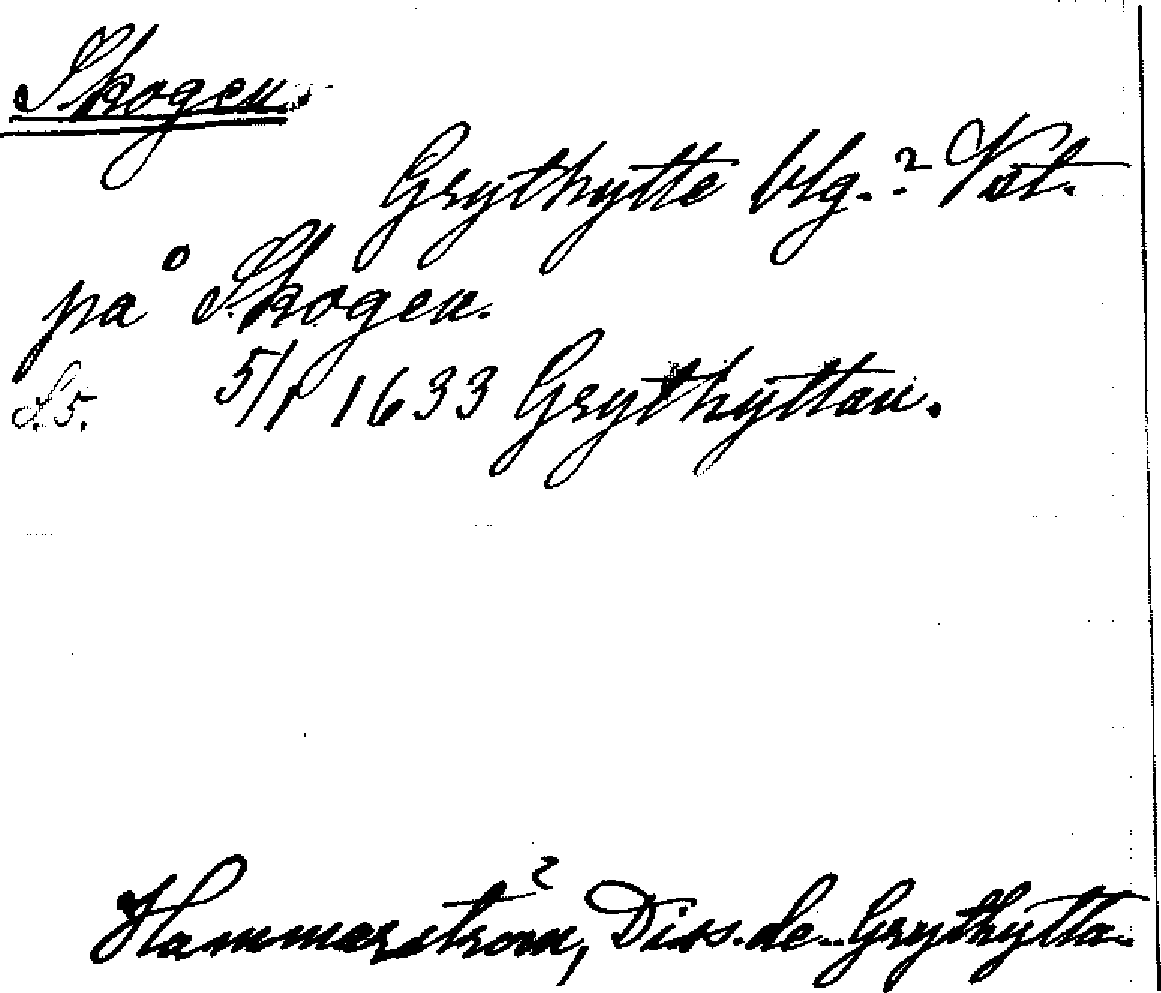 Skogen.
Grythytte blg.? Vstl.
på Skogen.
S. 5. 5/1 1633 Grythyttan.
Hammarström, Diss. de Grythytta